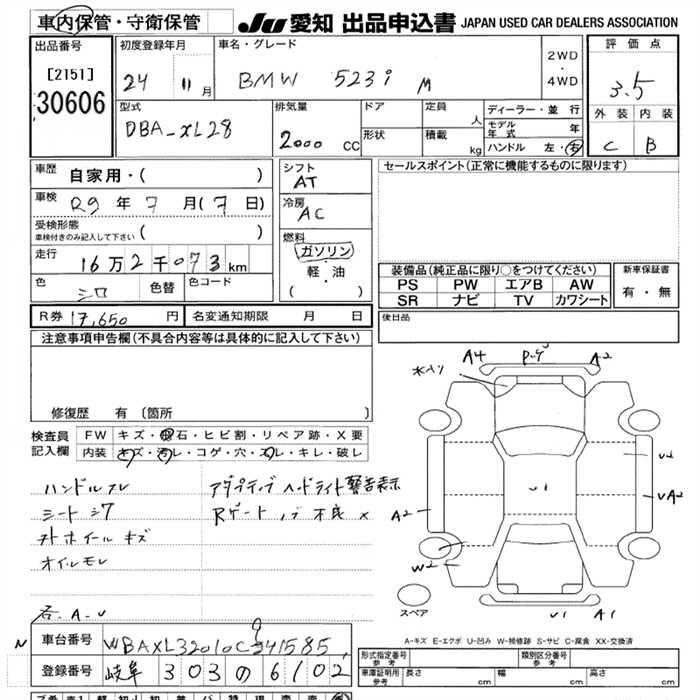 車内保管・守衛保管
JU 愛知 出品申込書 JAPAN USED CAR DEALERS ASSOCIATION
出品番号
[2151]
30606
初度登録年月
24 11 月
車名・グレード
BMW 523i M
2WD
・
4WD
評価点
3.5
外装 内装
C B
型式
DBA-XL28
排気量
2000 CC
ドア
形状
定員
人
積載
kg
ディーラー・並行
モデル年式 年
ハンドル 左・右
車歴
自家用・( )
車検
R9 年 7 月 (7 日)
受検形態
車検付きのみ記入して下さい ( )
走行
16万2千073 km
色
シロ
色替
色コード
シフト
AT
冷房
AC
燃料
ガソリン
・
軽・油
( )
セールスポイント(正常に機能するものに限ります)
装備品(純正品に限り○をつけてください)
PS PW エアB AW
SR ナビ TV カワシート
新車保証書
有・無
R券 17,650 円
名変通知期限 月 日
後日品
注意事項申告欄(不具合内容等は具体的に記入して下さい)
修復歴 有 〔箇所
検査員
記入欄
FW キズ・飛石・ヒビ割・リペア跡・X要
内装 キズ・汚レ・コゲ・穴・スレ・キレ・破レ
ハンドルスレ
シートシワ
ホイールキズ
オイルモレ
アダプティブ ヘッドライト警告表示
Rゲート ノブ 不良 x
各.A.U
A4
A2
U2
UA2
U1
A2
W2
U1
A1
スペア
A-キズ E-エクボ U-凹み W-補修跡 S-サビ C-腐食 XX-交換済
車台番号
WBAXL32010C341585
登録番号
岐阜 303 の 6102
形式指定番号
参考
類別区分番号
参考
車庫証明用
参考
長さ cm
幅 cm
高さ cm